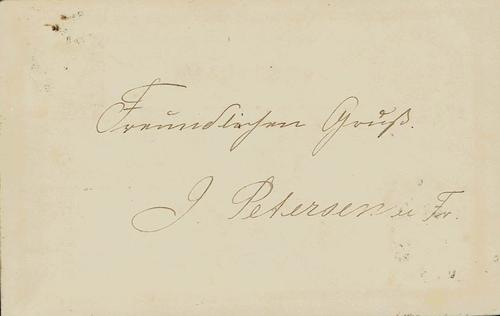 Freundlichen Gruß.
J Petersen u Fr.